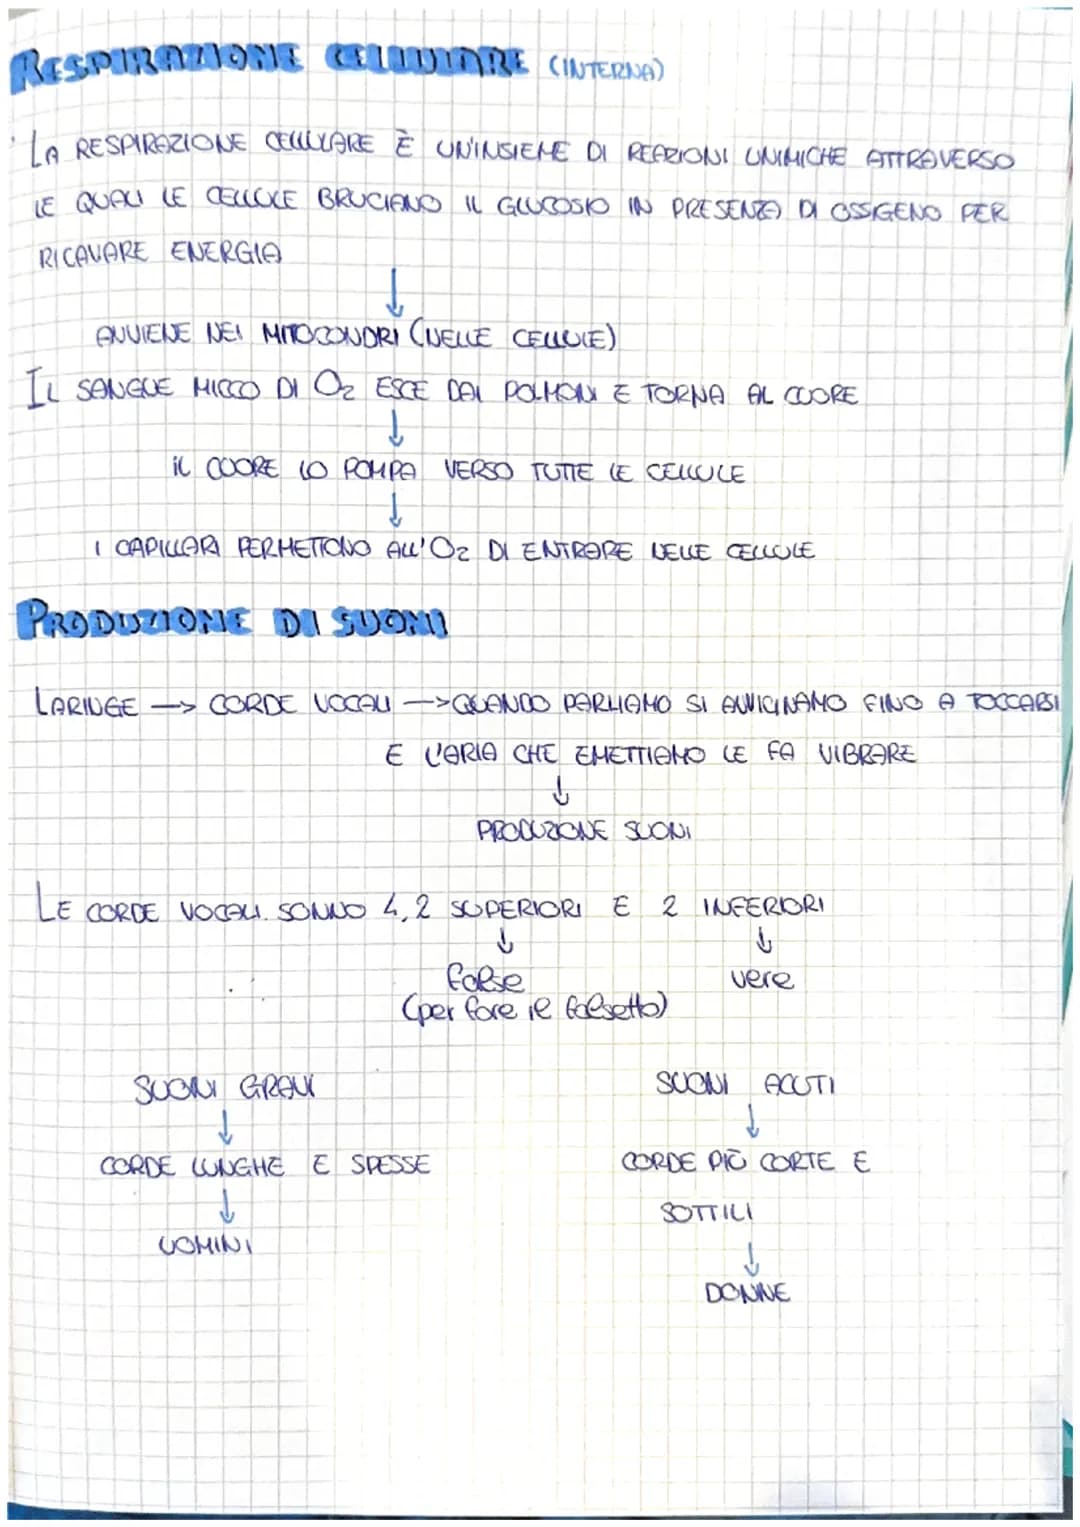 RESPIRAZIONE CELLULARE (INTERNA)
LA RESPIRAZIONE CELLULARE È UN'INSIEME DI REAZIONI CHIMICHE ATTRAVERSO
LE QUALI LE CELLULE BRUCIANO IL GLUCOSIO IN PRESENZA DI OSSIGENO PER
RICAVARE ENERGIA
↓
AVVIENE NEI MITOCONDRI (NELLE CELLULE)
IL SANGUE RICCO DI O₂ ESCE DAI POLMONI E TORNA AL CUORE
↓
IL CUORE LO POMPA VERSO TUTTE LE CELLULE
↓
I CAPILLARI PERMETTONO ALL'O₂ DI ENTRARE NELLE CELLULE
PRODUZIONE DI SUONI
LARINGE → CORDE VOCALI → QUANDO PARLIAMO SI AVVICINANO FINO A TOCCARSI
E L'ARIA CHE EMETTIAMO LE FA VIBRARE
↓
PRODUZIONE SUONI
LE CORDE VOCALI SONNO 4, 2 SUPERIORI E 2 INFERIORI
↓ ↓
false vere
(per fare il falsetto)
SUONI GRAVI SUONI ACUTI
↓ ↓
CORDE LUNGHE E SPESSE CORDE PIÙ CORTE E
↓ SOTTILI
UOMINI ↓
DONNE